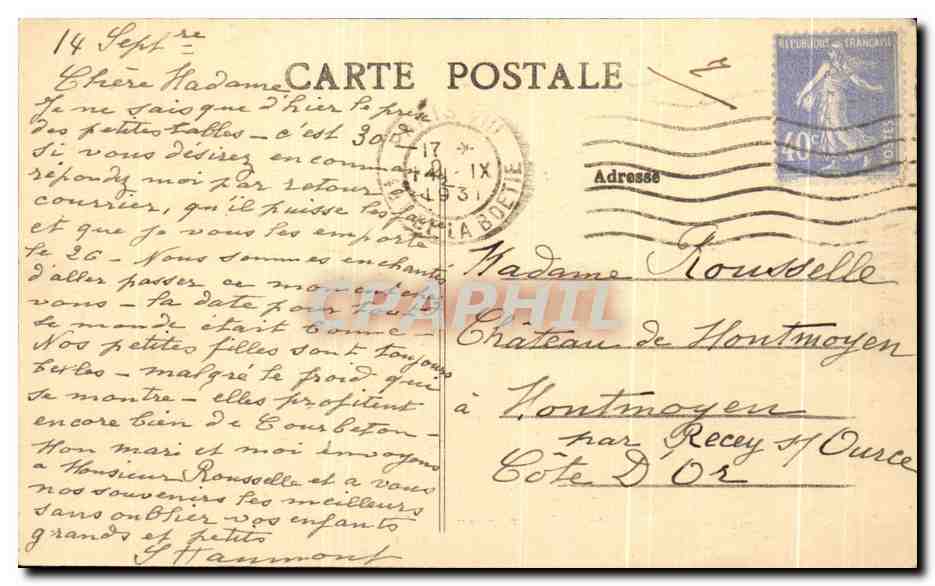 14 Sept^re
Chère Madame
Je ne sais que d'hier le prix
des petites tables – c'est 30d –
si vous désirez en comm
répondez moi par retour
courrier, qu'il puisse les faire
et que je vous les emporte
le 26 – Nous sommes enchantés
d'aller passer ce moment chez
vous – la date pour tout
le monde était bonne –
Nos petites filles sont toujours
belles – malgré le froid qui
se montre – elles profitent
encore bien de Courbeton –
Mon mari et moi envoyons
a Monsieur Rousselle et a vous
nos souvenirs les meilleurs
sans oublier vos enfants
grands et petits
S Haumont
CARTE POSTALE
REPUBLIQUE FRANÇAISE
40c
POSTES
PARIS VIII
17
14 - IX
1931
R. LA BOETIE
Adresse
Madame Rousselle
Château de Montmoyen
à Montmoyen
par Recey s/ Ource
Côte D'Or
CPAPHIL